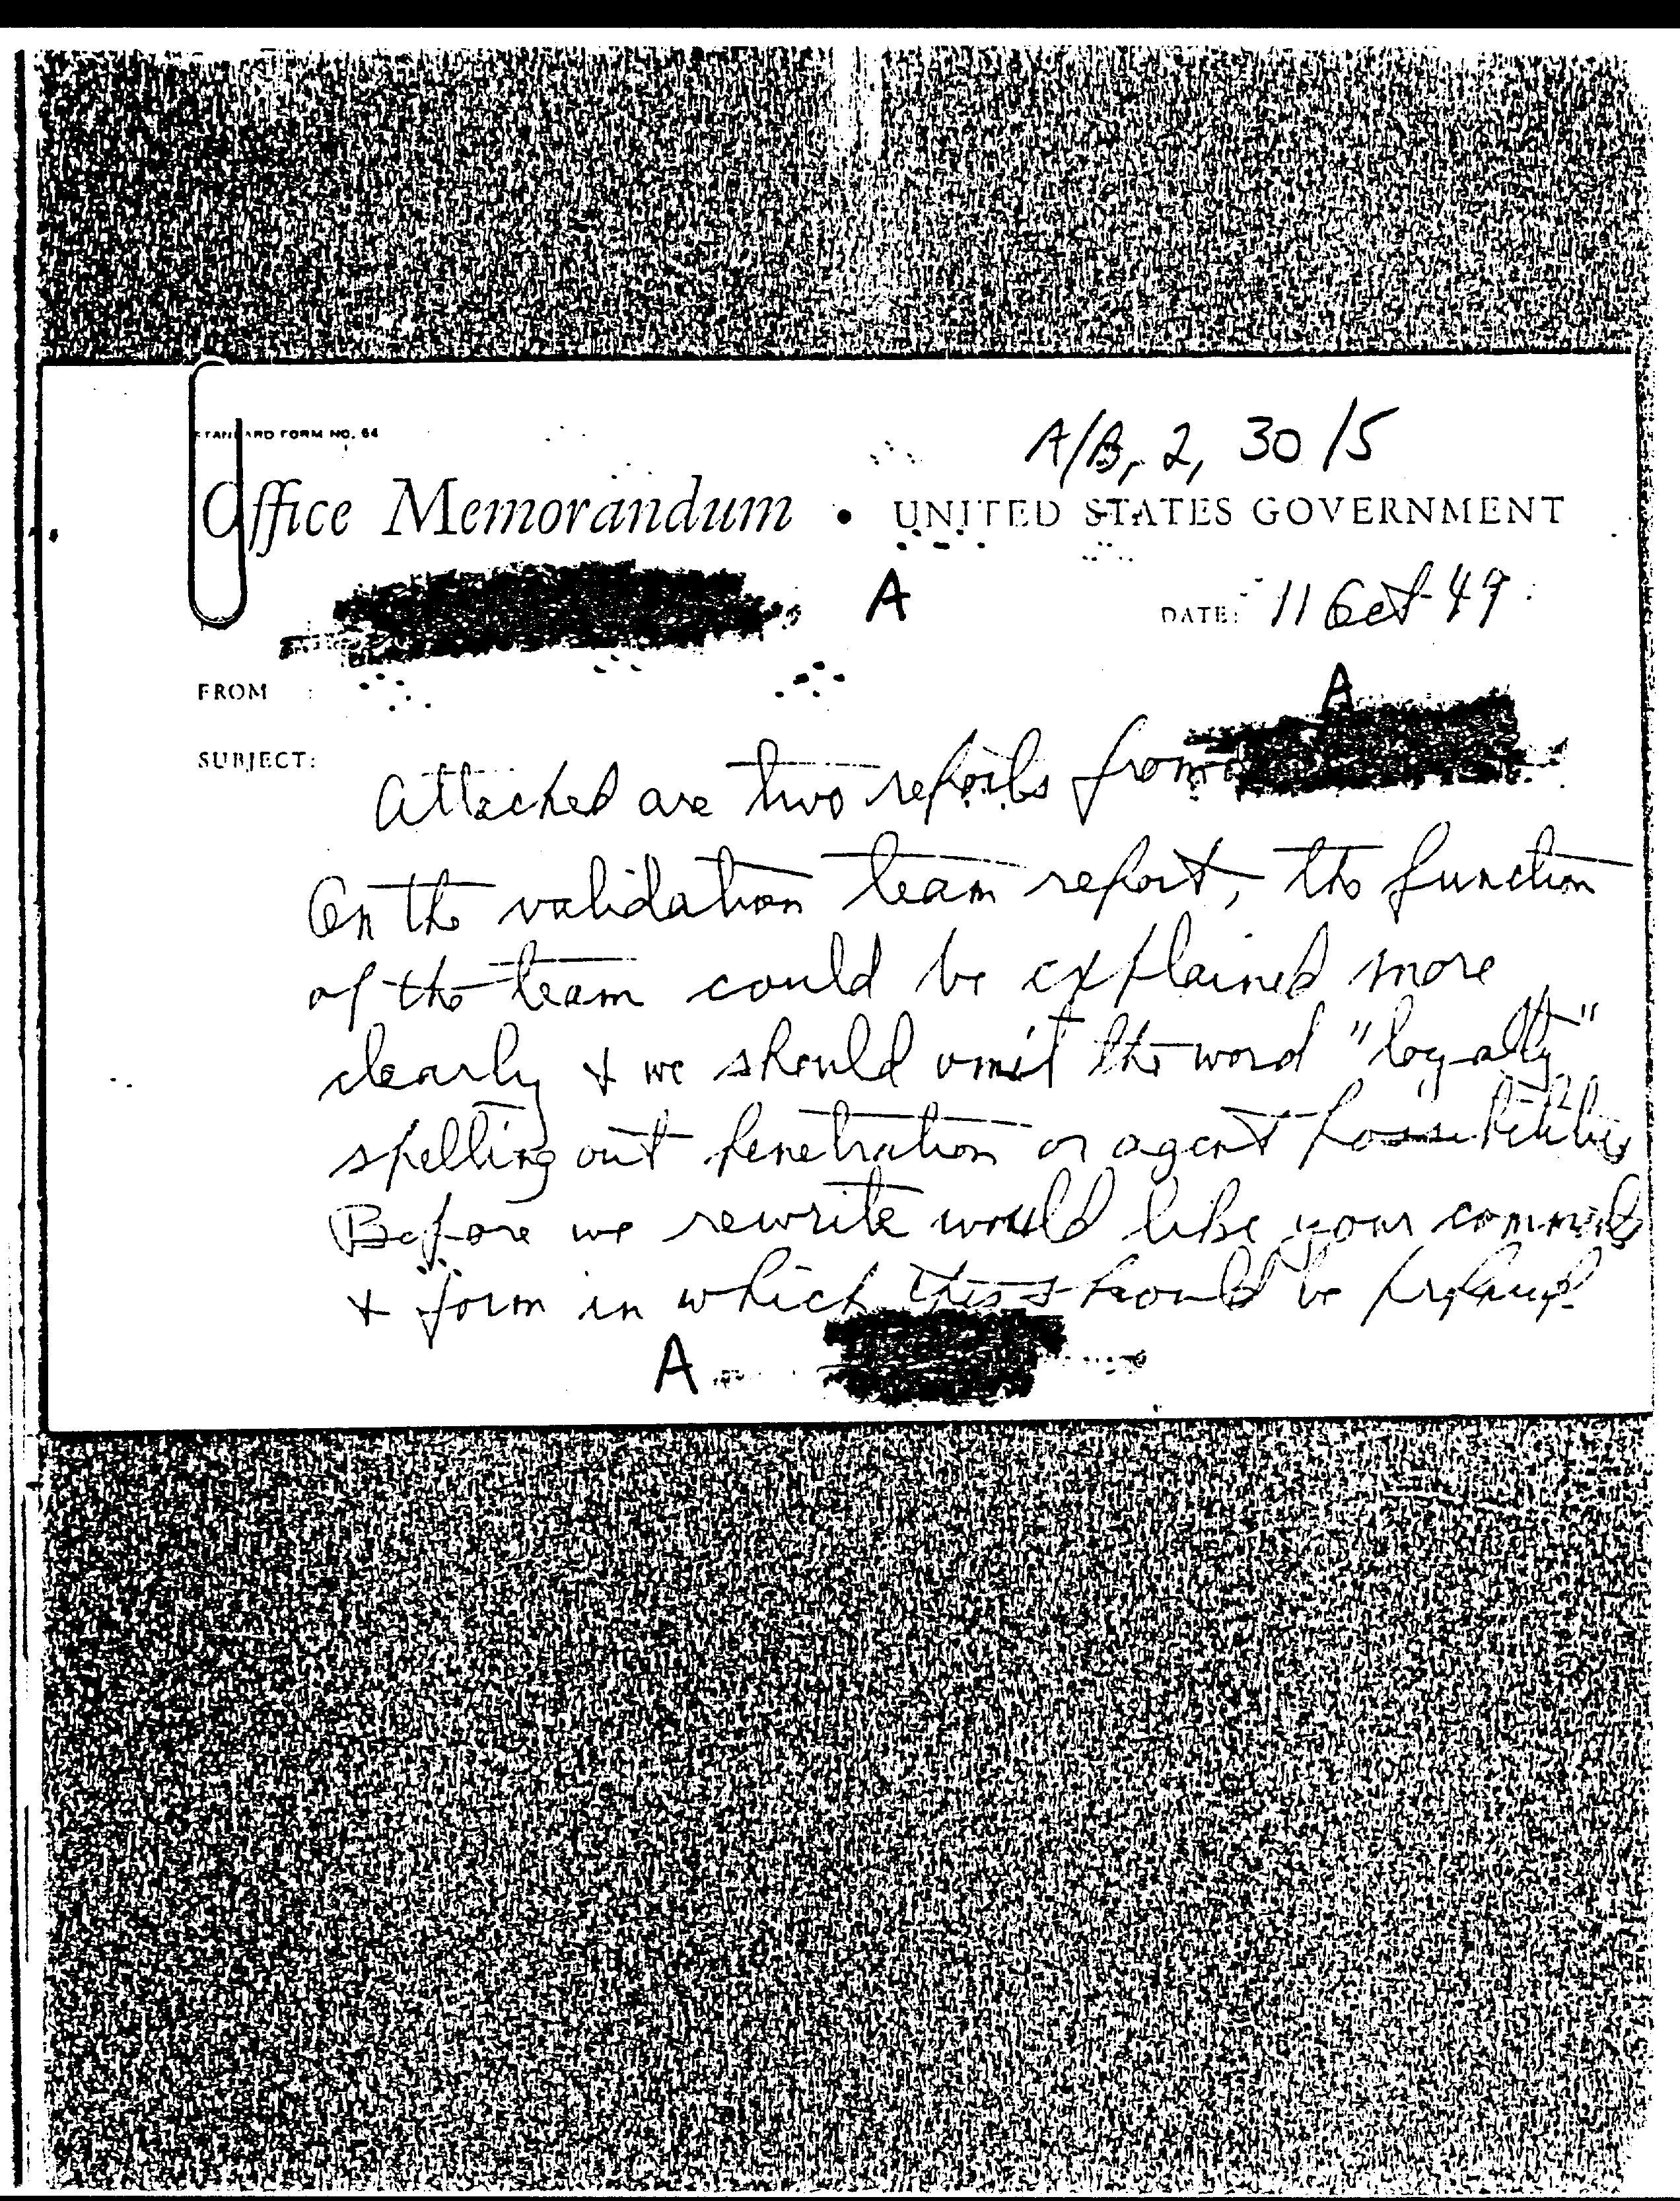 A/B, 2, 30/5
STANDARD FORM NO. 64
Office Memorandum • UNITED STATES GOVERNMENT
A
DATE: 11 Oct 49
FROM :
A
SUBJECT:
Attached are two reports from
On the validation team report, the function
of the team could be explained more
clearly & we should omit the word "loyalty"
spelling out penetration or agent possibilities
Before we rewrite would like your comments
& form in which this should be
A